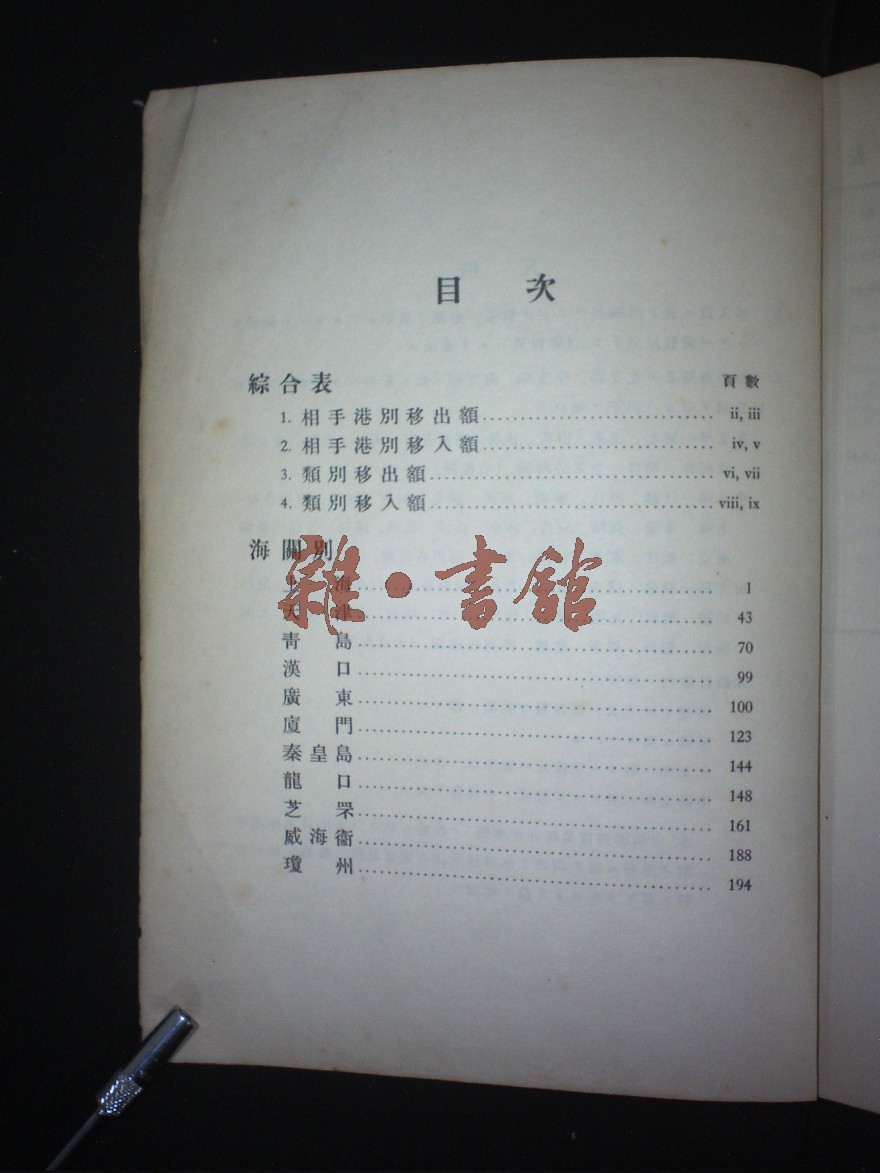 目次
綜合表 頁數
1. 相手港別移出額 ii, iii
2. 相手港別移入額 iv, v
3. 類別移出額 vi, vii
4. 類別移入額 viii, ix
海關別
上海 1
天津 43
靑島 70
漢口 99
廣東 100
廈門 123
秦皇島 144
龍口 148
芝罘 161
威海衞 188
瓊州 194
雜·書館